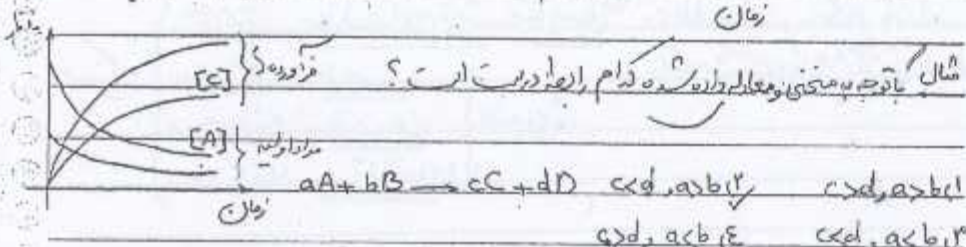 زمان
مثال) با توجه به منحنی و معادله داده شده کدام رابطه درست است؟
[C] } فرآورده
[A] } مواد اولیه
aA + bB → cC + dD
c>d , a>b (۱
c<d , a>b (۲
c<d , a<b (۳
c>d , a<b (٤
زمان